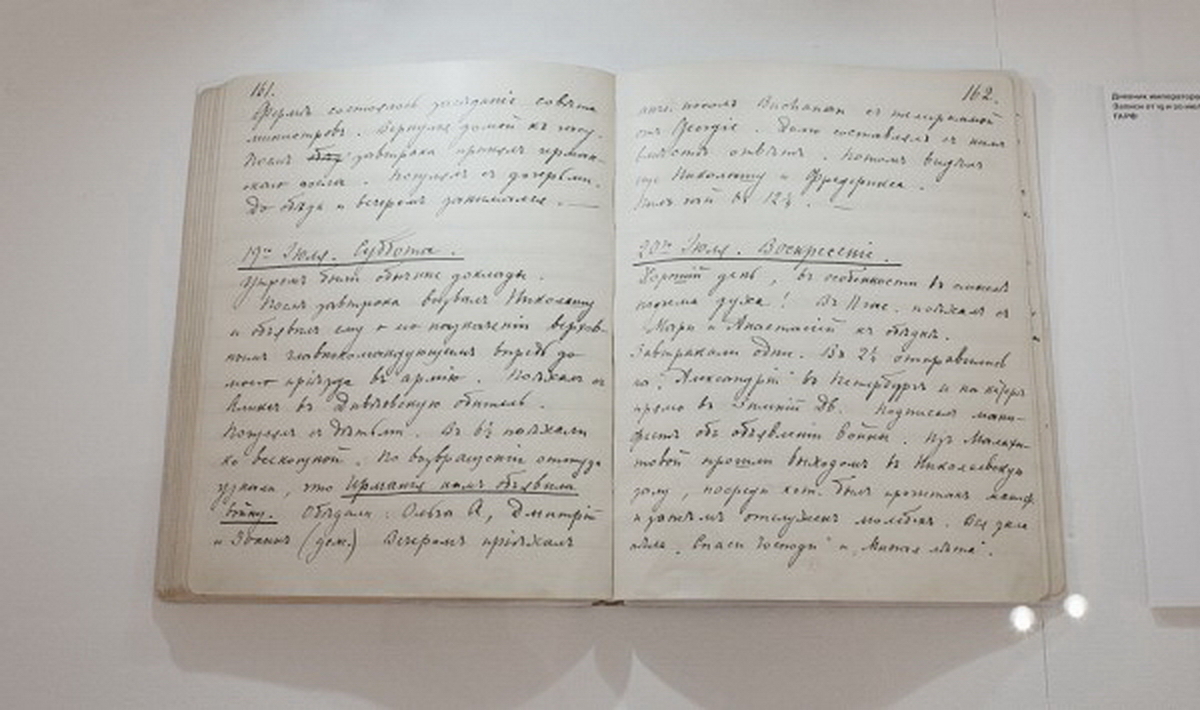 161.
Фермѣ состоялось засѣданіе совѣта
министровъ. Вернулся домой къ часу.
Послѣ завтрака принялъ герман-
скаго посла. Погулялъ съ дочерьми.
До обѣда и вечеромъ занимался. —
19го Іюля. Суббота.
Утромъ были обычные доклады.
Послѣ завтрака вызвалъ Николашу
и объявилъ ему о его назначеніи верхов-
нымъ главнокомандующимъ впредь до
моего пріѣзда въ армію. Поѣхалъ съ
Аликс въ Дивѣевскую обитель.
Погулялъ съ дѣтьми. Въ 6½ поѣхали
ко всенощной. По возвращеніи оттуда
узнали, что Германія намъ объявила
войну. Обѣдали: Ольга А, Дмитрій
и Іоаннъ (деж.) Вечеромъ пріѣхалъ
162.
англ. посолъ Buchanan съ телеграммой
отъ Georgie. Долго составлялъ съ нимъ
вмѣстѣ отвѣтъ. Потомъ видѣлъ
еще Николашу и Фредерикса.
Пилъ чай въ 12¼. —
20го Іюля. Воскресеніе.
Хорошій день, въ особенности въ смыслѣ
подъема духа! Въ 11 час. поѣхалъ съ
Мари и Анастасіей къ обѣднѣ.
Завтракали одни. Въ 2¼ отправились
на „Александріи" въ Петербургъ и на катерѣ
прямо въ Зимній Дв. Подписалъ мани-
фестъ объ объявленіи войны. Изъ Малахи-
товой прошли выходомъ въ Николаевскую
залу, посреди кот. былъ прочитанъ маниф.
и затѣмъ отслуженъ молебенъ. Вся зала
пѣла „Спаси Господи" и „Многая лѣта".
Дневник императора
Записи от 19 и 20 июля
ГАРФ